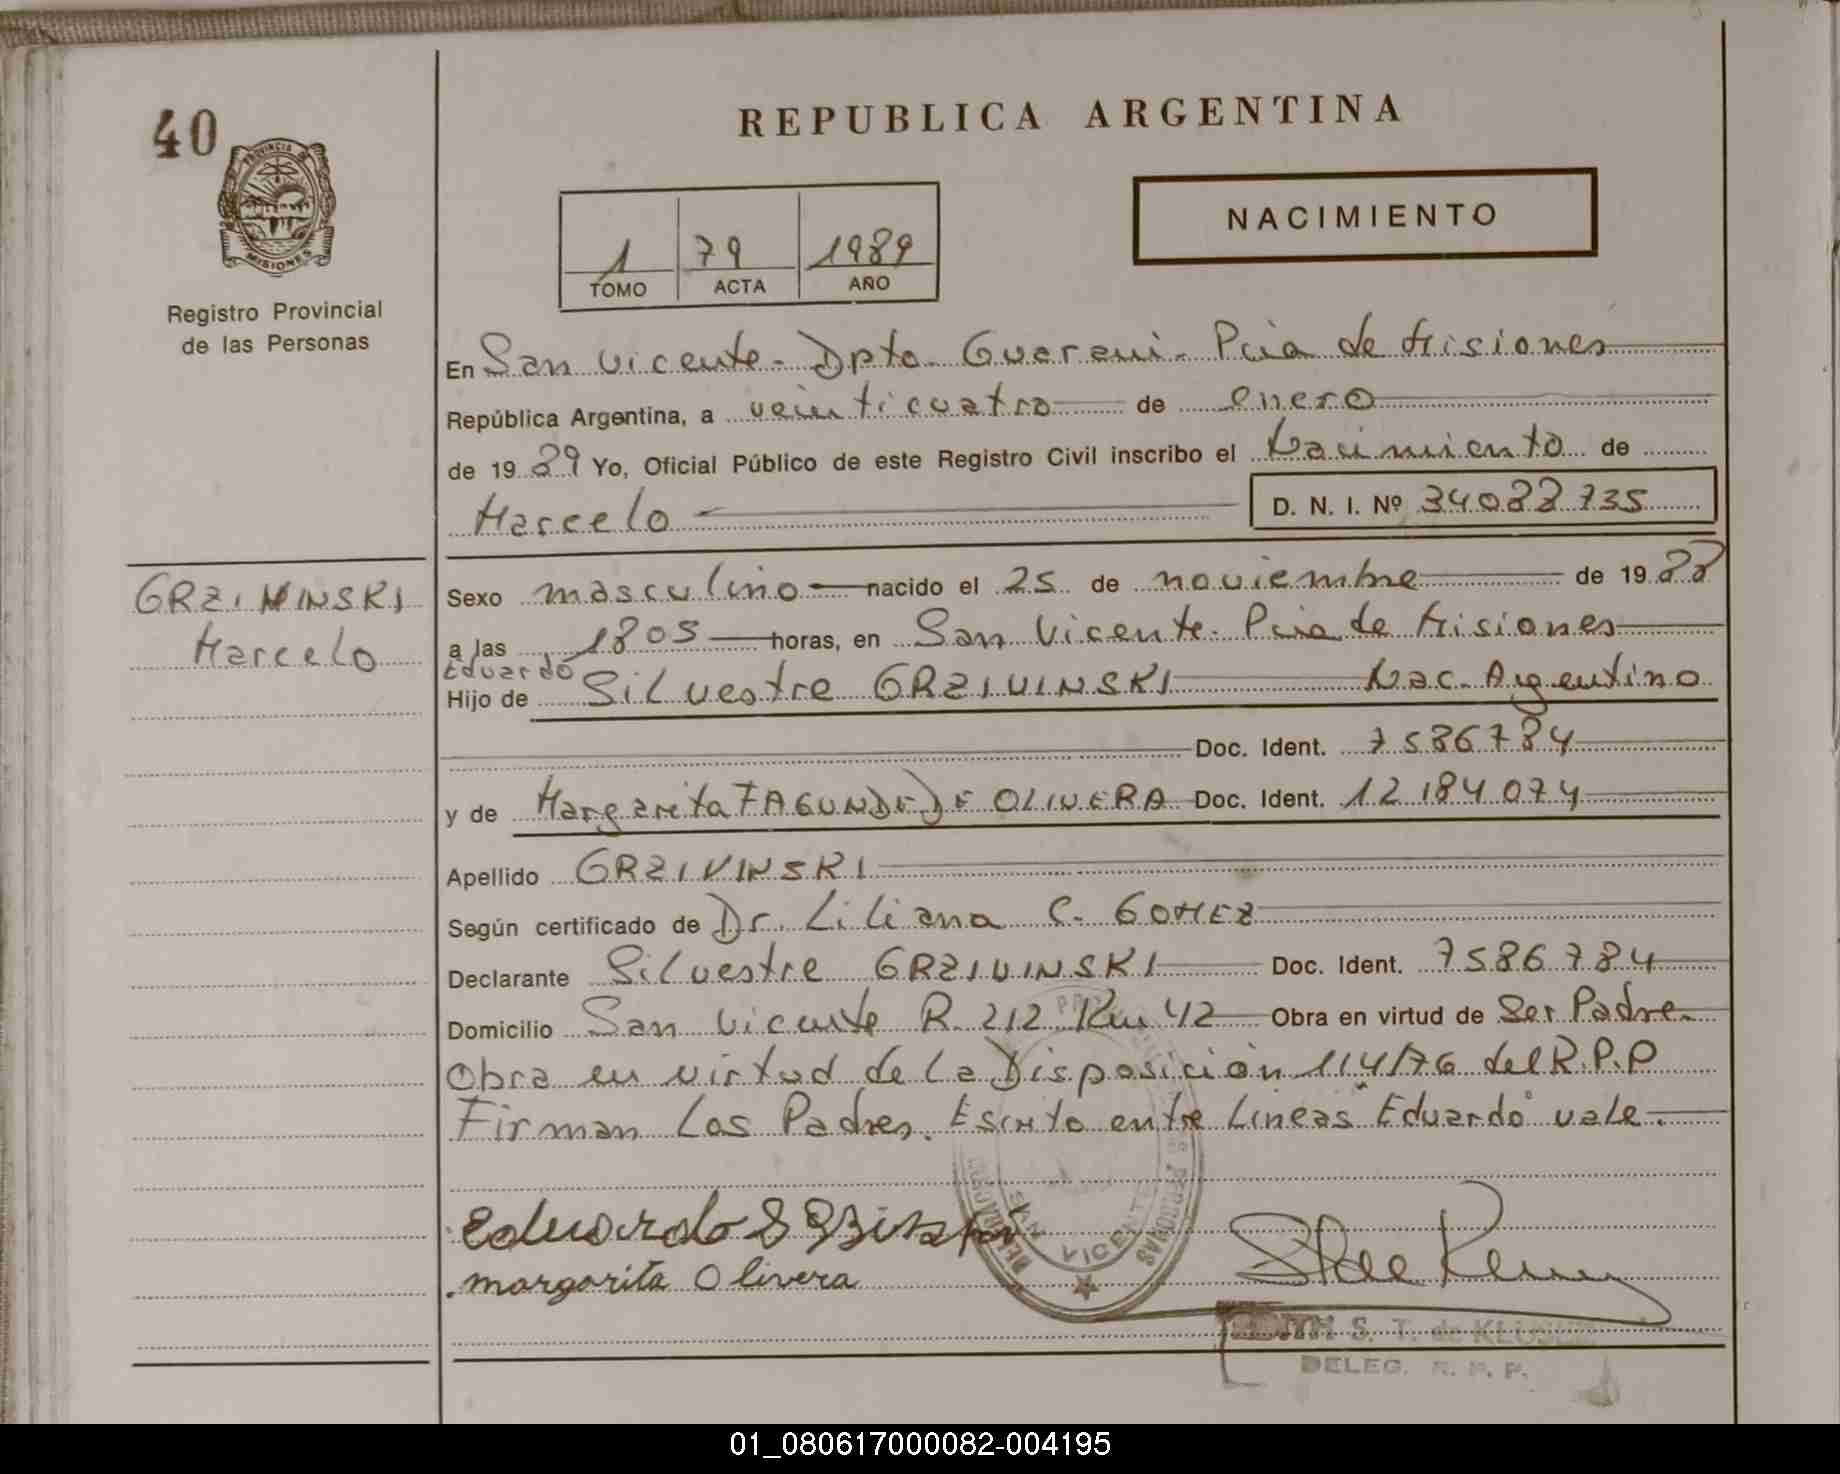 40
REPUBLICA ARGENTINA
PROVINCIA DE
MISIONES
Registro Provincial
de las Personas
1 79 1989
TOMO ACTA AÑO
NACIMIENTO
En San Vicente - Dpto. Guarani - Pcia de Misiones
República Argentina, a veinticuatro de enero
de 1989 Yo, Oficial Público de este Registro Civil inscribo el Nacimiento de
Marcelo D. N. I. Nº 34088735
GRZIVINSKI
Marcelo
Sexo masculino nacido el 25 de noviembre de 1988
a las 1805 horas, en San Vicente. Pcia de Misiones
Eduardo
Hijo de Silvestre GRZIVINSKI Nac. Argentino
Doc. Ident. 7586784
y de Margarita FAGUNDE DE OLIVERA Doc. Ident. 12184074
Apellido GRZIVINSKI
Según certificado de Dr. Liliana C. GOMEZ
Declarante Silvestre GRZIVINSKI Doc. Ident. 7586784
Domicilio San Vicente R. 212 Km 42 Obra en virtud de Ser Padre.
Obra en virtud de la Disposición 114/76 del R.P.P
Firman Los Padres. Escrito entre Lineas "Eduardo" vale.
Eduardo S
margarita Olivera
SAN VICENTE
S. T. de
DELEG. R. P. P.
01_080617000082-004195